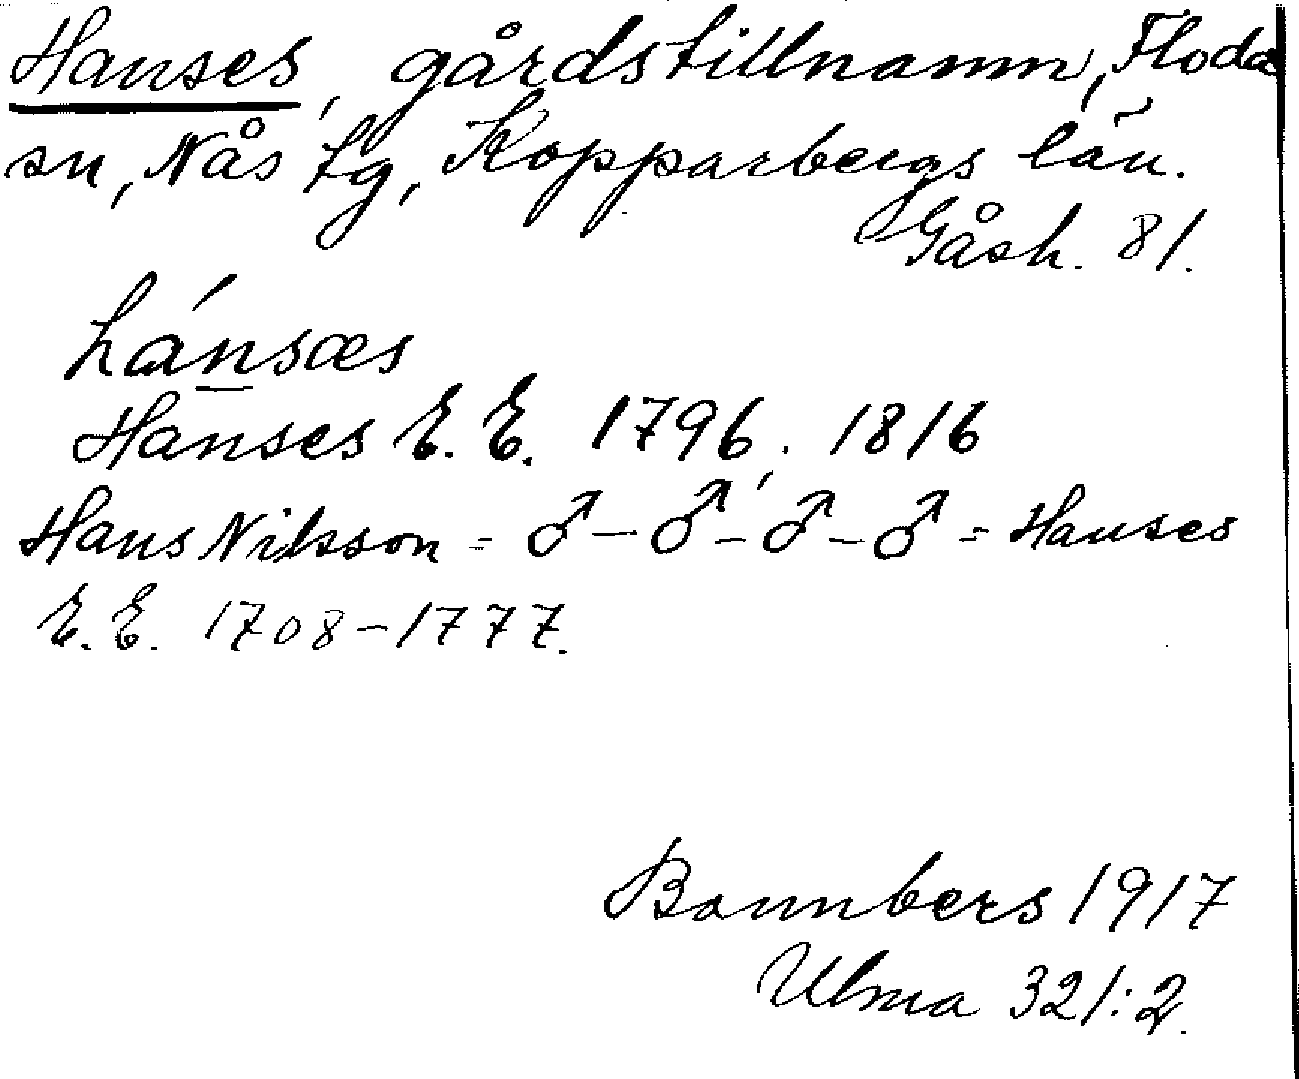 Hanses, gårdstillnamn, Floda
sn, Nås tg, Kopparbergs län.
Gåsh. 81.
hánsæs
Hanses E. E. 1796, 1816
Hans Nilsson = ♂ – ♂ – ♂ – ♂ = Hanses
E. E. 1708–1777.
Bannbers 1917
Ulma 321:2.